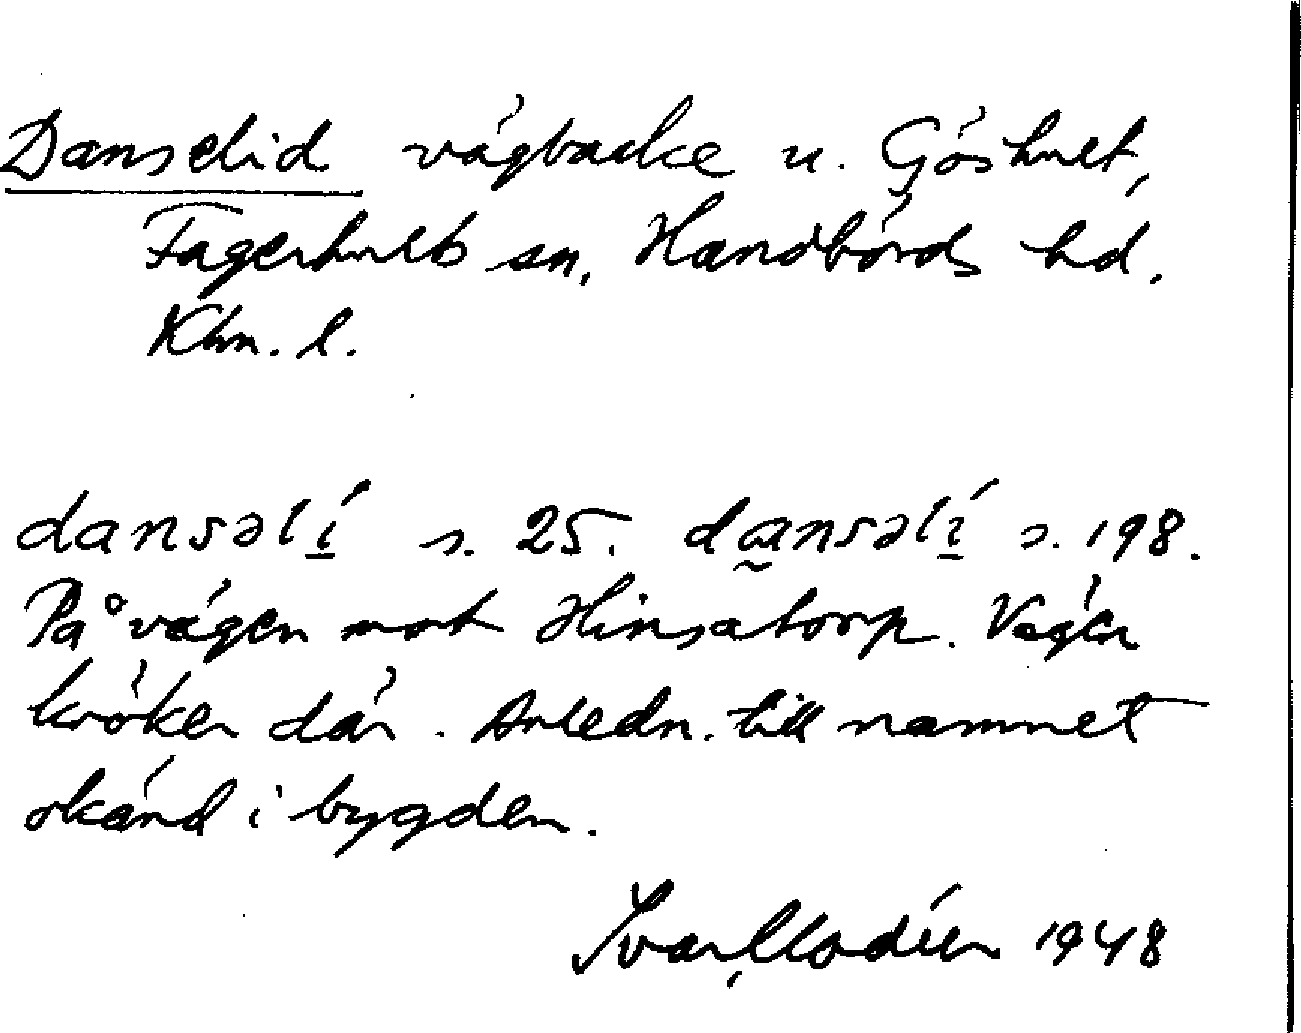 Danselid vägbacke u. Göshult,
Fagerhults sn, Handbörds hd.
Klm. l.
dansəlí s. 25. dansəlí s. 198.
På vägen mot Hinsatorp. Vägen
kröker där. Anledn. till namnet
okänd i bygden.
Ivar Modéer 1948